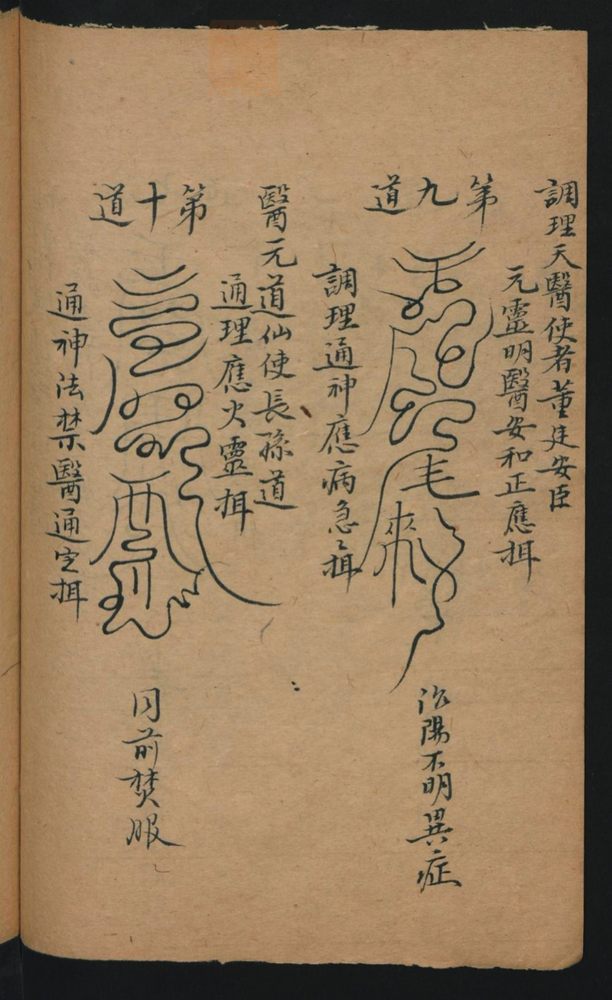 調理天醫使者董廷安臣
第九道
元靈明醫安和正應揖
調理通神應病急急揖
治陽不明異症
醫元道仙使長孫道
第十道
通理應火靈揖
通神法禁醫通定揖
同前焚服